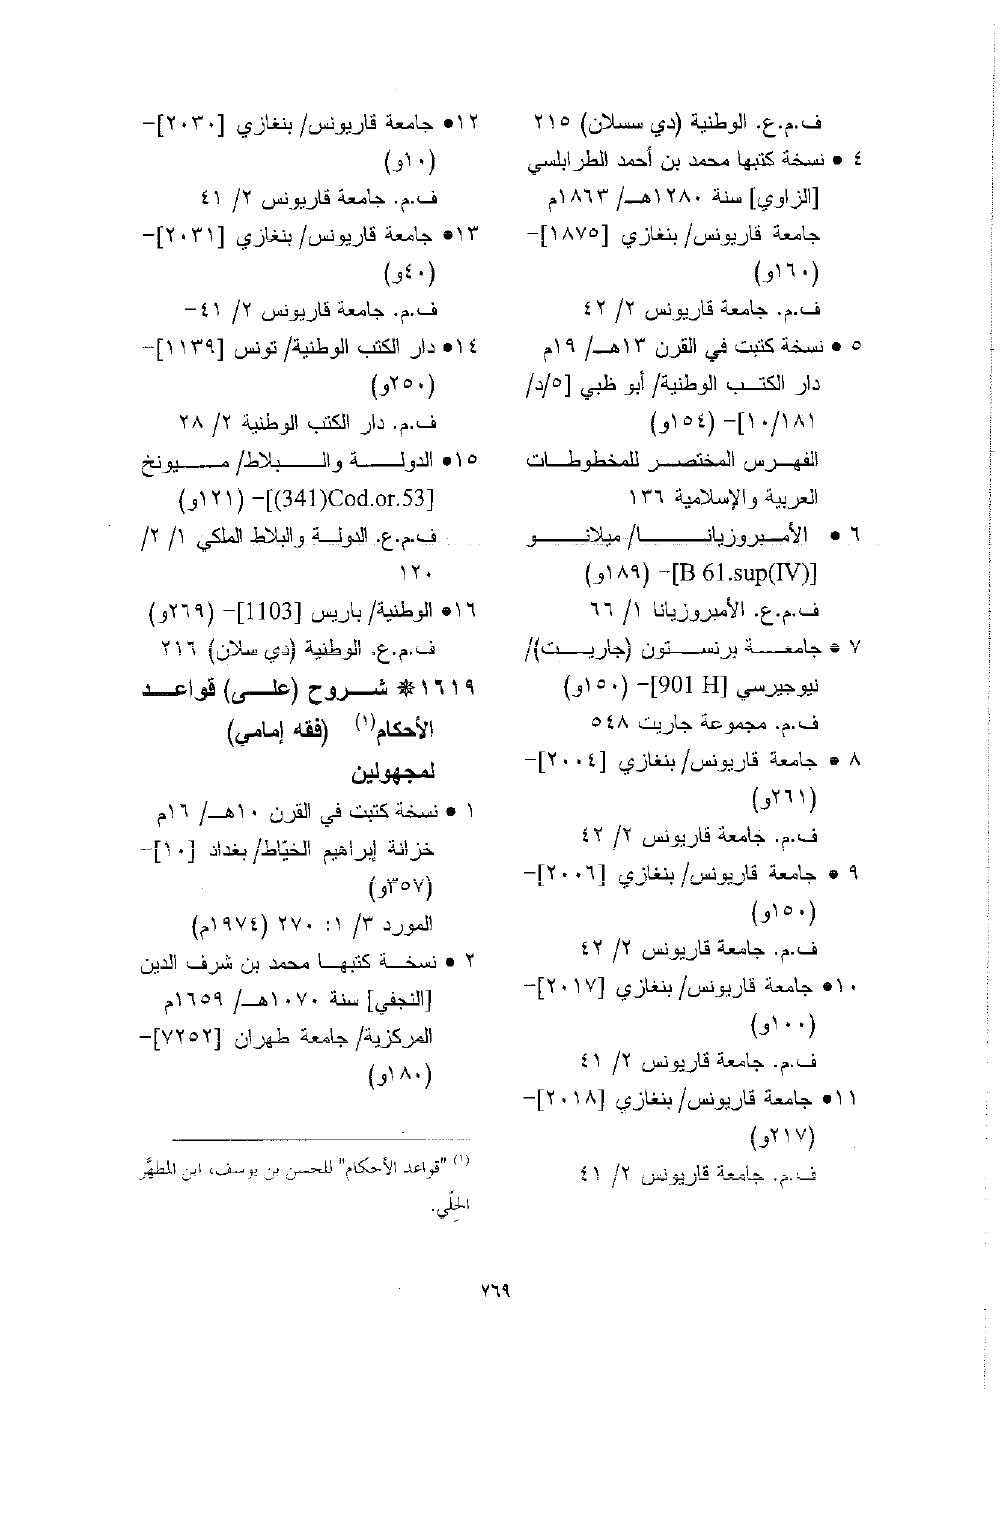 ف.م.ع. الوطنية (دي سسلان) ٢١٥
٤ • نسخة كتبها محمد بن أحمد الطرابلسي
[الزاوي] سنة ١٢٨٠هـ/ ١٨٦٣م
جامعة قاريونس/ بنغازي [١٨٧٥]-
(١٦٠و)
ف.م. جامعة قاريونس ٢/ ٤٢
٥ • نسخة كتبت في القرن ١٣هـ/ ١٩م
دار الكتب الوطنية/ أبو ظبي [٥/د/
١٠/١٨١]- (١٥٤و)
الفهرس المختصر للمخطوطات
العربية والإسلامية ١٣٦
٦ • الأمبروزيانا/ ميلانو
[B 61.sup(IV)]- (١٨٩و)
ف.م.ع. الأمبروزيانا ١/ ٦٦
٧ • جامعة برنستون (جاريت)/
نيوجيرسي [901 H]- (١٥٠و)
ف.م. مجموعة جاريت ٥٤٨
٨ • جامعة قاريونس/ بنغازي [٢٠٠٤]-
(٢٦١و)
ف.م. جامعة قاريونس ٢/ ٤٢
٩ • جامعة قاريونس/ بنغازي [٢٠٠٦]-
(١٥٠و)
ف.م. جامعة قاريونس ٢/ ٤٢
١٠• جامعة قاريونس/ بنغازي [٢٠١٧]-
(١٠٠و)
ف.م. جامعة قاريونس ٢/ ٤١
١١• جامعة قاريونس/ بنغازي [٢٠١٨]-
(٢١٧و)
ف.م. جامعة قاريونس ٢/ ٤١
١٢• جامعة قاريونس/ بنغازي [٢٠٣٠]-
(١٠و)
ف.م. جامعة قاريونس ٢/ ٤١
١٣• جامعة قاريونس/ بنغازي [٢٠٣١]-
(٤٠و)
ف.م. جامعة قاريونس ٢/ ٤١-
١٤• دار الكتب الوطنية/ تونس [١١٣٩]-
(٢٥٠و)
ف.م. دار الكتب الوطنية ٢/ ٢٨
١٥• الدولة والبلاط/ ميونخ
[Cod.or.53(341)]- (١٢١و)
ف.م.ع. الدولة والبلاط الملكي ١/ ٢/
١٢٠
١٦• الوطنية/ باريس [1103]- (٢٦٩و)
ف.م.ع. الوطنية (دي سلان) ٢١٦
١٦١٩* شروح (على) قواعد
الأحكام(١) (فقه إمامي)
لمجهولين
١ • نسخة كتبت في القرن ١٠هـ/ ١٦م
خزانة إبراهيم الخيّاط/ بغداد [١٠]-
(٣٥٧و)
المورد ٣/ ١: ٢٧٠ (١٩٧٤م)
٢ • نسخة كتبها محمد بن شرف الدين
[النجفي] سنة ١٠٧٠هـ/ ١٦٥٩م
المركزية/ جامعة طهران [٧٢٥٢]-
(١٨٠و)
(١) "قواعد الأحكام" للحسن بن يوسف، ابن المطهَّر
الحِلّي.
٧٦٩